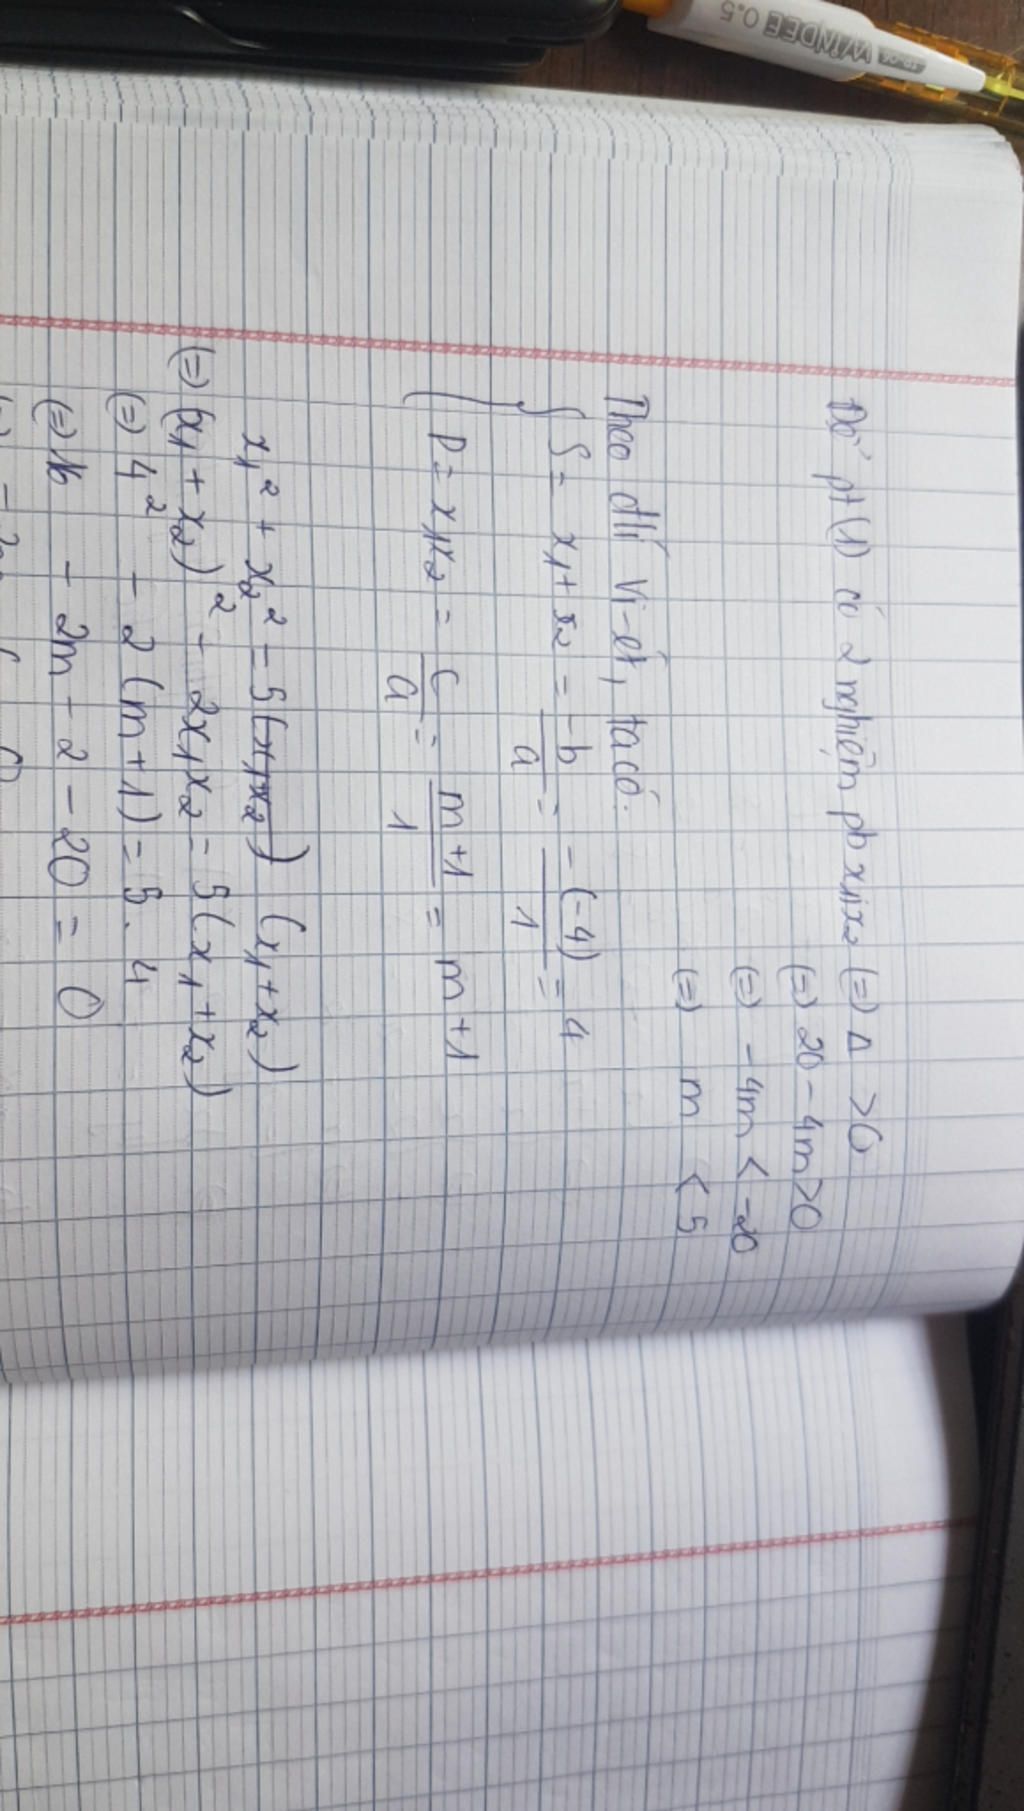 Để pt (1) có 2 nghiệm pb x₁, x₂ (=) Δ > 0
(=) 20 - 4m > 0
(=) -4m < -20
(=) m < 5
Theo đlí Vi-ét, ta có:
{ S = x₁ + x₂ = -b/a = -(-4)/1 = 4
P = x₁x₂ = c/a = m+1/1 = m+1
x₁² + x₂² = 5 (x₁+x₂)
(=) (x₁ + x₂)² - 2x₁x₂ = 5(x₁+x₂)
(=) 4² - 2(m+1) = 5.4
(=) 16 - 2m - 2 - 20 = 0
WINDEE 0.5